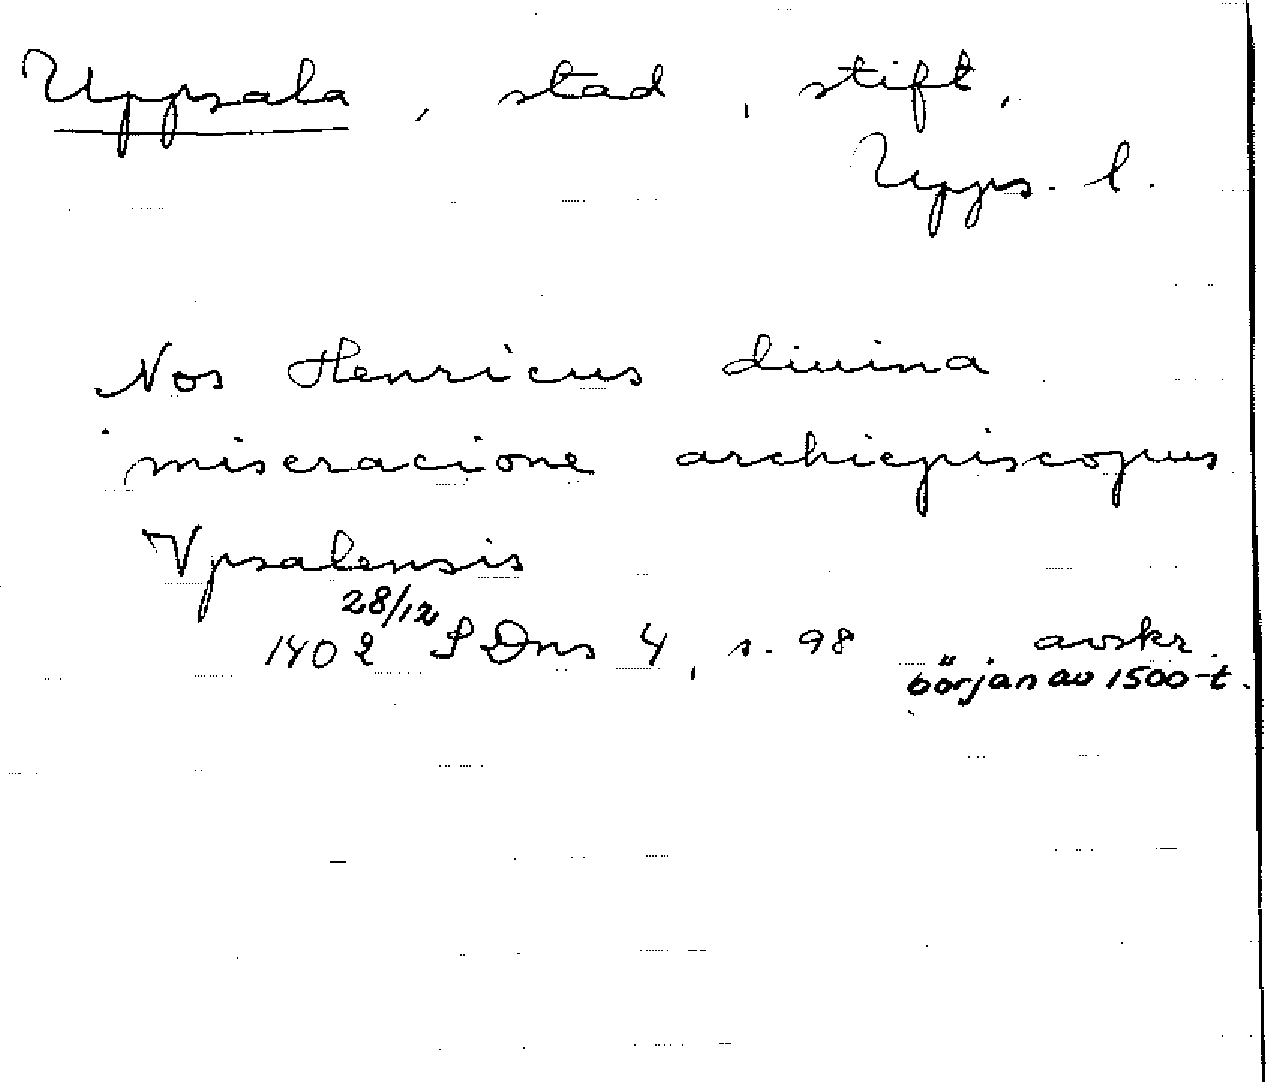 Uppsala, stad, stift,
Upps. l.
Nos Henricus diuina
miseracione archiepiscopus
Vpsalensis
28/12
1402 SDns 4, s. 98 avskr.
början av 1500-t.